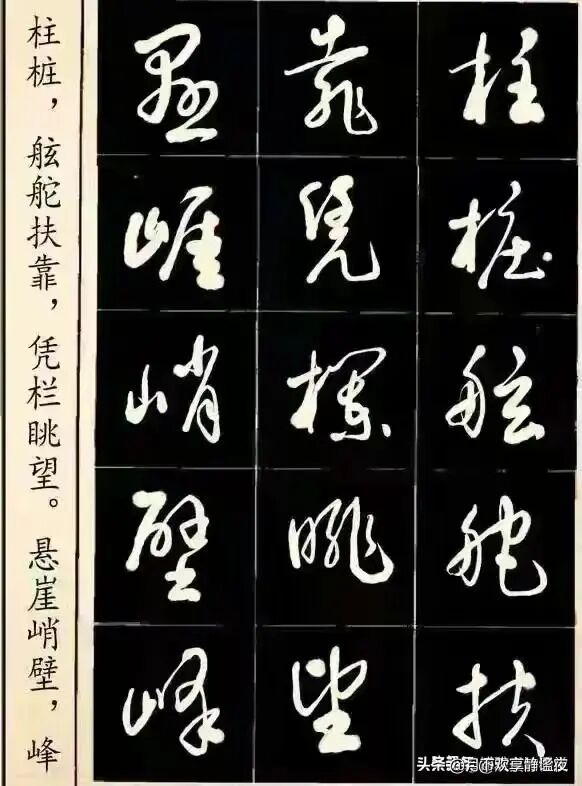 柱桩，舷舵扶靠，凭栏眺望。悬崖峭壁，峰
柱桩舷舵扶
靠凭栏眺望
悬崖峭壁峰